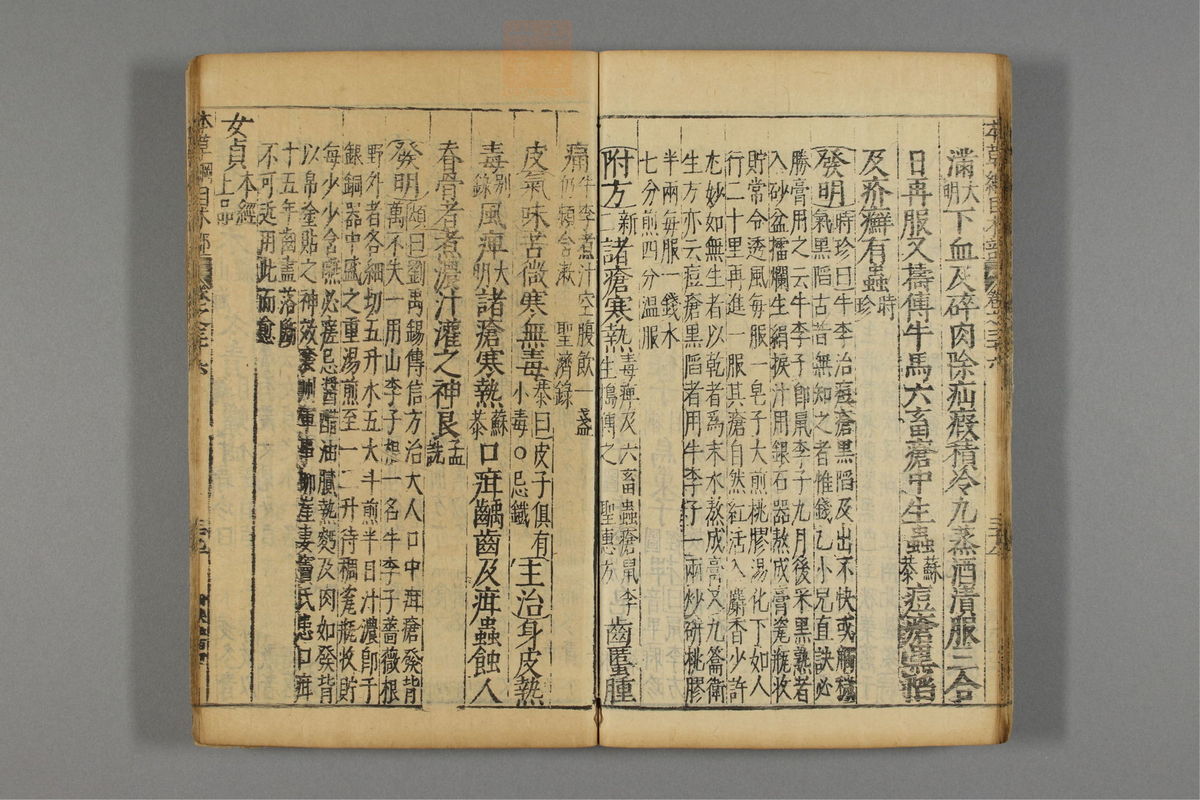 滿大明下血及碎肉除疝瘕積冷九蒸酒漬服三合
日再服又擣傅牛馬六畜瘡中生蟲蘇恭痘瘡黑陷
及疥癬有蟲時珍
發明時珍曰牛李治痘瘡黑陷及出不快或觸穢
氣黑陷古昔無知之者惟錢乙小兒直訣必
勝膏用之云牛李子即鼠李子九月後采黑熟者
入砂盆擂爛生絹捩汁用銀石器熬成膏瓷瓶收
貯常令透風每服一皂子大煎桃膠湯化下如人
行二十里再進一服其瘡自然紅活入麝香少許
尤妙如無生者以乾者為末水熬成膏又九籥衛
生方亦云痘瘡黑陷者用牛李子一兩炒研桃膠
半兩每服一錢水
七分煎四分溫服
附方新二諸瘡寒熱毒痺及六畜蟲瘡鼠李生擣傅之 聖惠方齒䘌腫
痛牛李煮汁空腹飲一盞仍頻含漱 聖濟錄
皮氣味苦微寒無毒恭曰皮子俱有小毒○忌鐵主治身皮熱
毒別錄風痺大明諸瘡寒熱蘇恭口疳齲齒及疳蟲蝕人
脊骨者煮濃汁灌之神良孟詵
發明頌曰劉禹錫傳信方治大人口中疳瘡發背
萬不失一用山李子根一名牛李子薔薇根
野外者各細切五升水五大斗煎半日汁濃即于
銀銅器中盛之重湯煎至一二升待稠瓷瓶收貯
每少少含嚥必瘥忌醬醋油膩熱麪及肉如發背
以帛塗貼之神效襄州軍事柳崖妻竇氏患口疳
十五年齒盡落斷
不可近用此而愈
女貞本經上品
本草綱目木部 卷之三十六